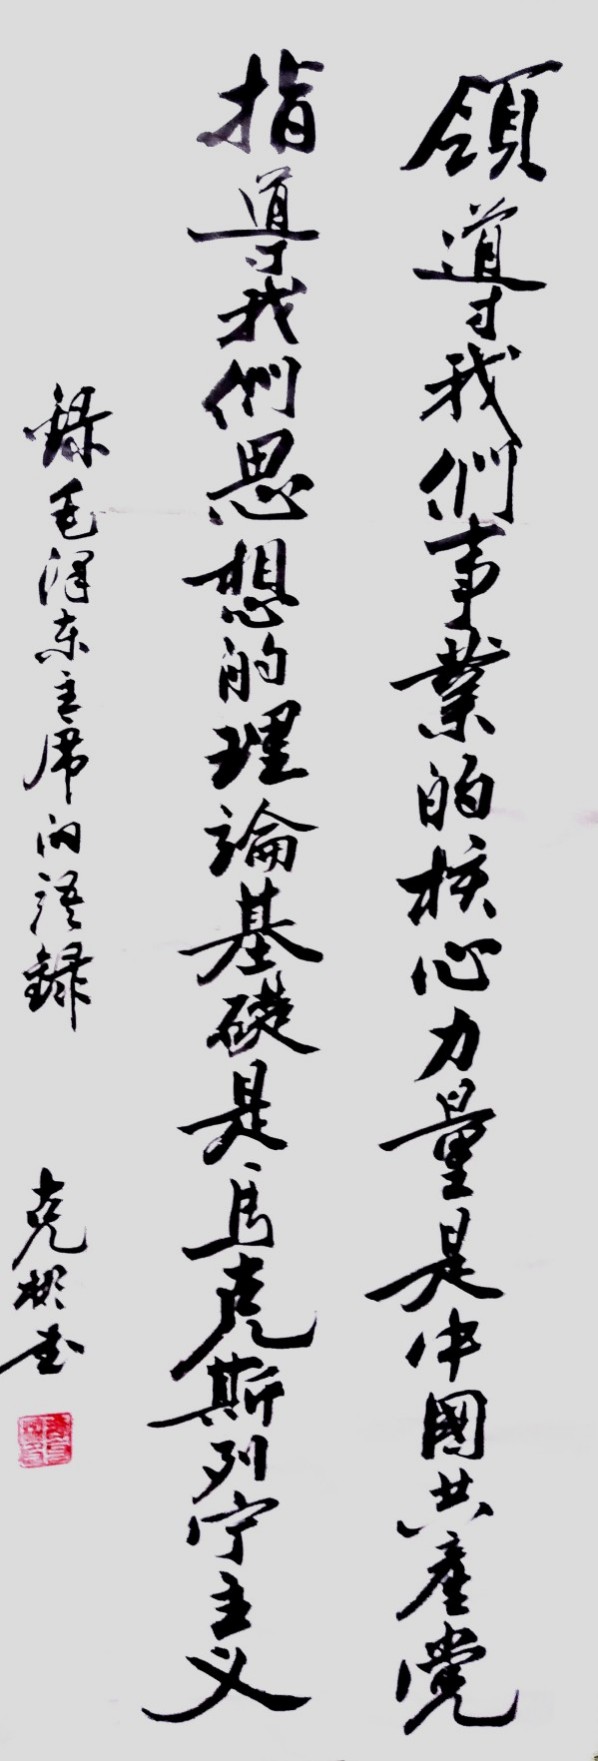 領導我們事業的核心力量是中國共產党
指導我們思想的理論基礎是馬克斯列宁主义
錄毛澤东主席的語録
克彬书